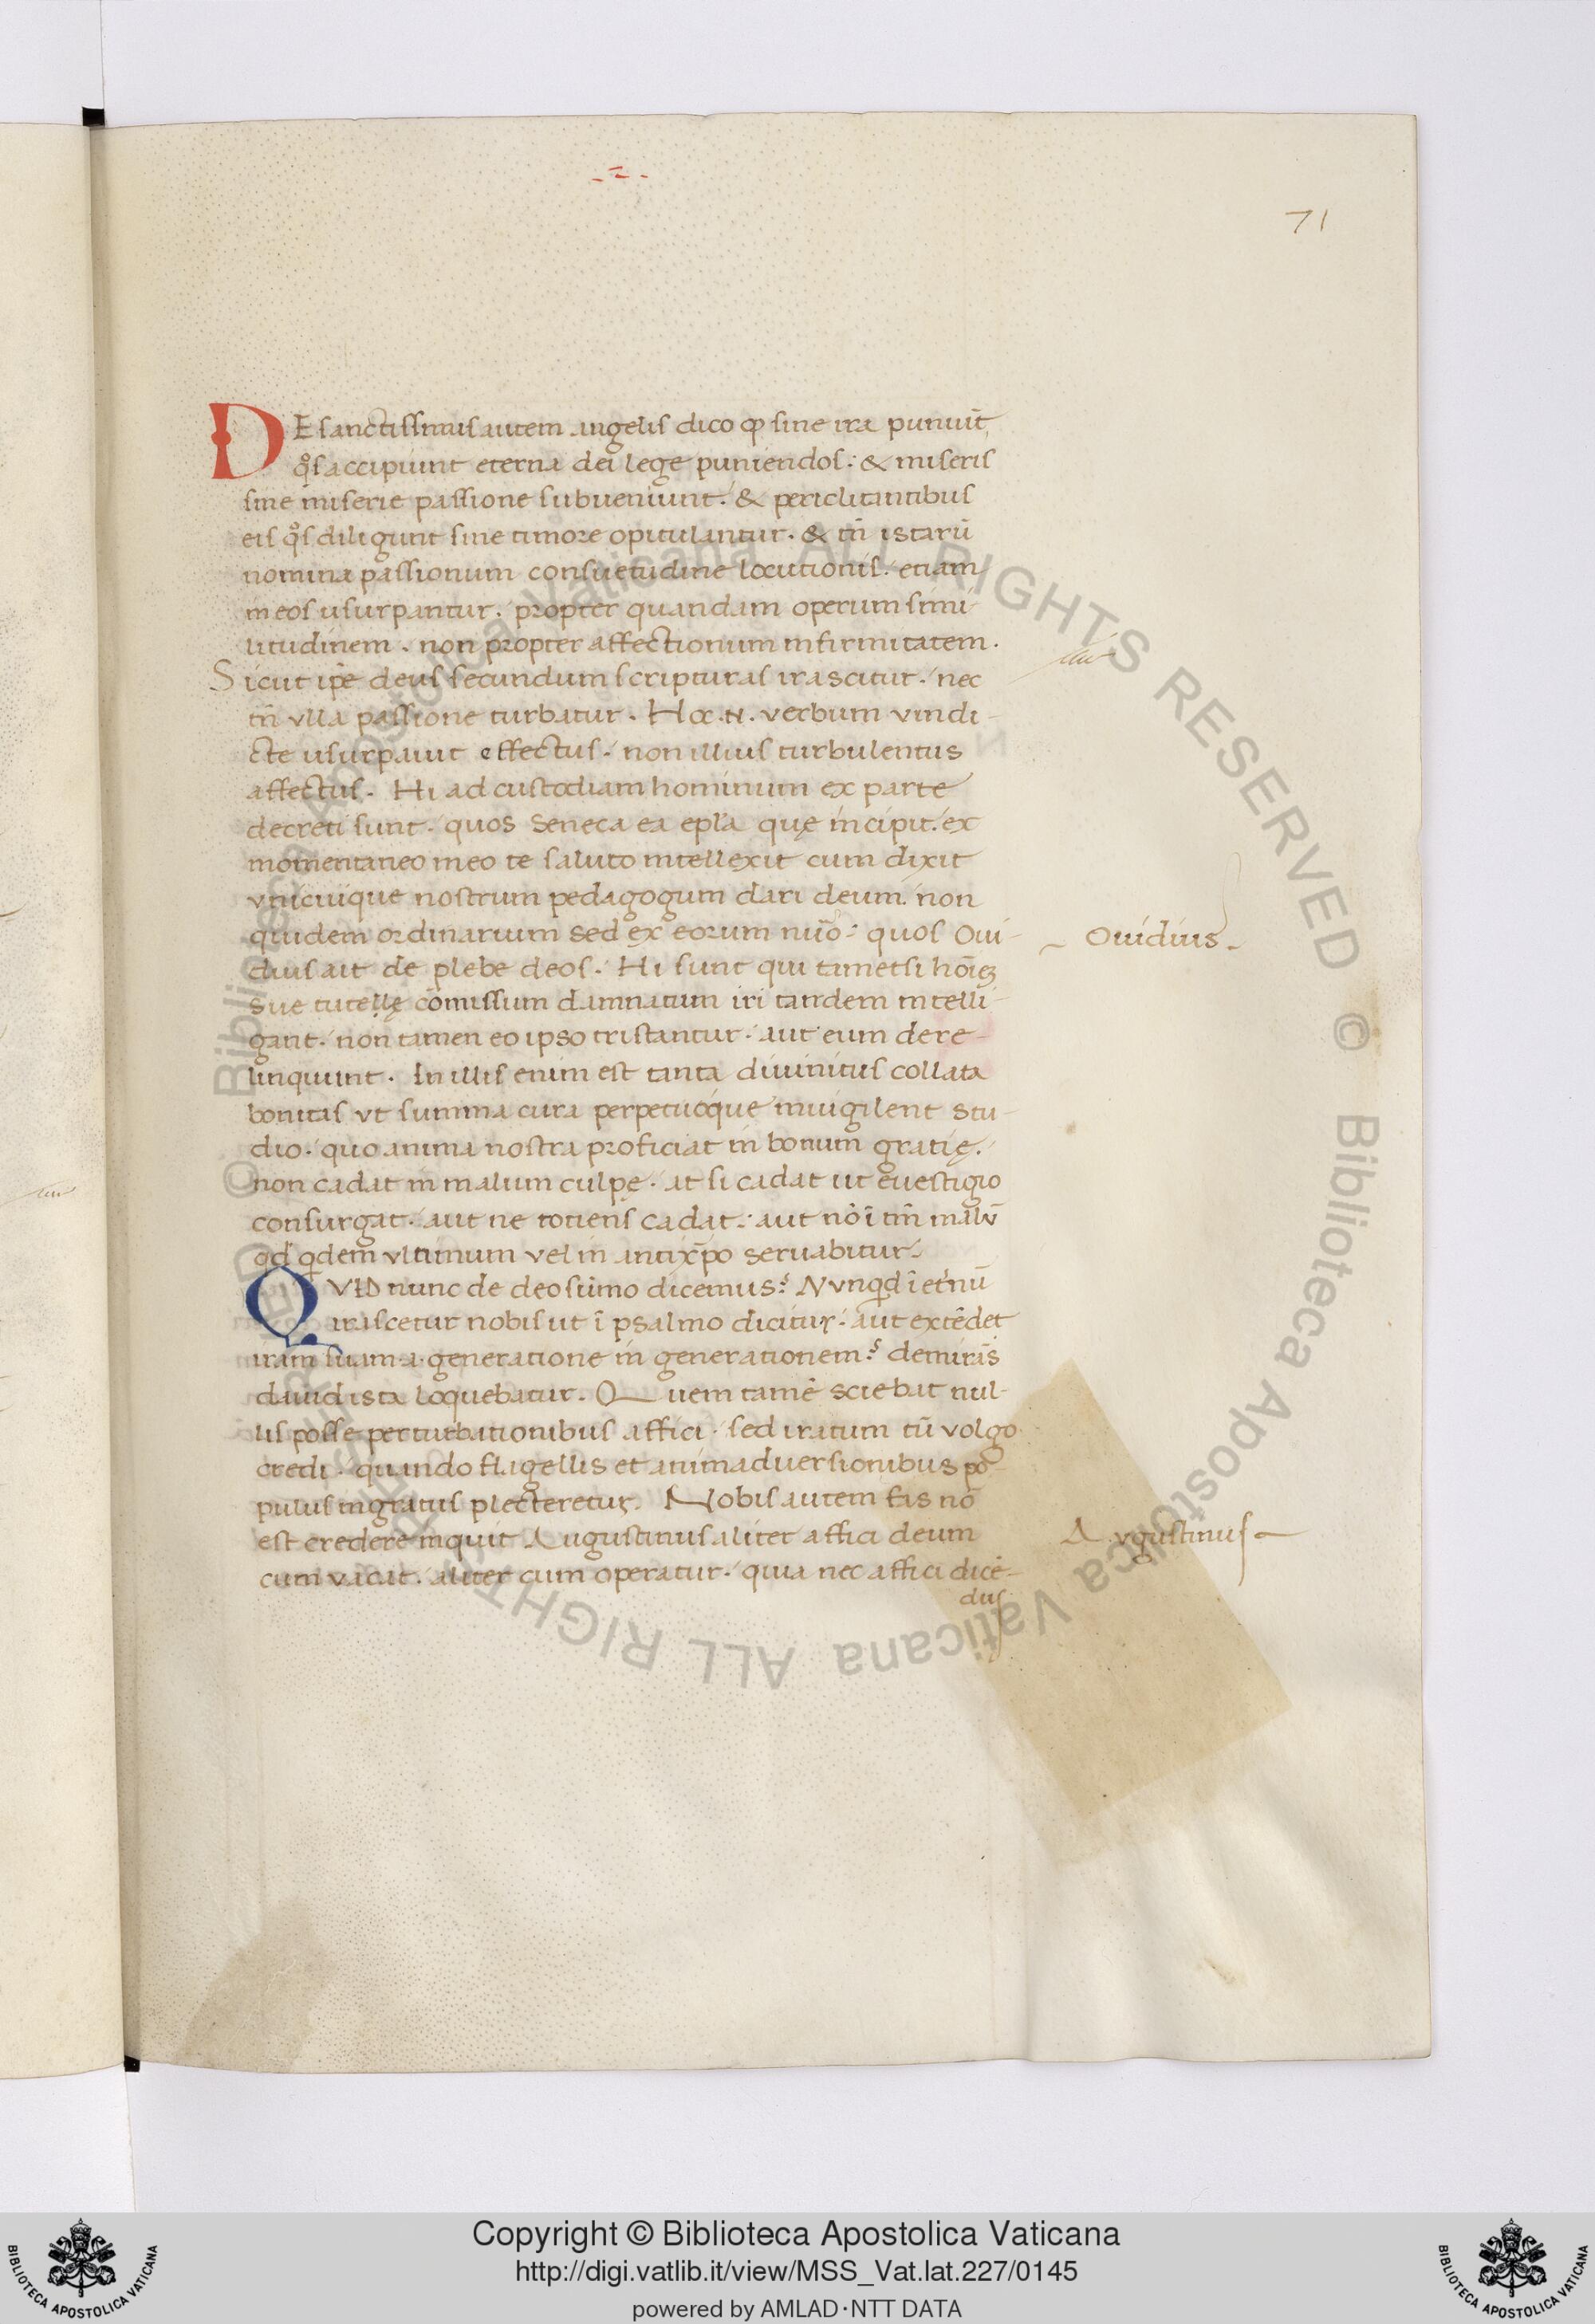 -z-
71
DE sanctissimis autem angelis dico ꝙ sine ira puniūt,
qͦs accipiunt eterna dei lege puniendos: & miseris
sine miserie passione subueniunt: & periclitantibus
eis qͦs diligunt sine timore opitulantur. & tn̄ istarū
nomina passionum consuetudine locutionis. etiam
in eos usurpantur. propter quandam operum simi-
litudinem. non propter affectionum infirmitatem.
Sicut ip̄e deus secundum scripturas irascitur. nec
tn̄ vlla passione turbatur. Hoc .N. verbum vindi-
cte usurpauit effectus. non illius turbulentus
affectus. Hi ad custodiam hominum ex parte
decreti sunt. quos Seneca ea epl̄a quę incipit. ex
momentaneo meo te saluto intellexit cum dixit
vnicuique nostrum pedagogum dari deum. non
quidem ordinarium sed ex eorum nūo: quos Oui-
dius ait de plebe deos. Hi sunt qui tametsi hōiēȝ
Ouidius.
sue tutellę cōmissum damnatum iri tandem intelli-
gant. non tamen eo ipso tristantur. aut eum dere-
linquunt. In illis enim est tanta diuinitus collata
bonitas vt summa cura perpetuoque inuigilent stu-
dio. quo anima nostra proficiat in bonum gratię.
non cadat in malum culpę. at si cadat ut euestigio
consurgat. aut ne totiens cadat. aut nō ī tm̄ malū
qd̄ qͥdem vltimum vel in antixp̄o seruabitur.
QVID nunc de deo sūmo dicemus? Nvnqͥd ī eternū
irascetur nobis ut ī psalmo dicitur. aut extēdet
iram suam .a. generatione in generationem? demirās
dauid ista loquebatur. Quem tamē sciebat nul-
lis posse perturbationibus affici. sed iratum tū volgo
credi. quando flagellis et animaduersionibus po-
pulus ingratus plecteretur. Nobis autem fas nō
est credere inquit Augustinus aliter affici deum
Avgustinus
cum vacat. aliter cum operatur. quia nec affici dicē-
dus
Copyright © Biblioteca Apostolica Vaticana
http://digi.vatlib.it/view/MSS_Vat.lat.227/0145
powered by AMLAD·NTT DATA
BIBLIOTECA APOSTOLICA VATICANA
BIBLIOTECA APOSTOLICA VATICANA